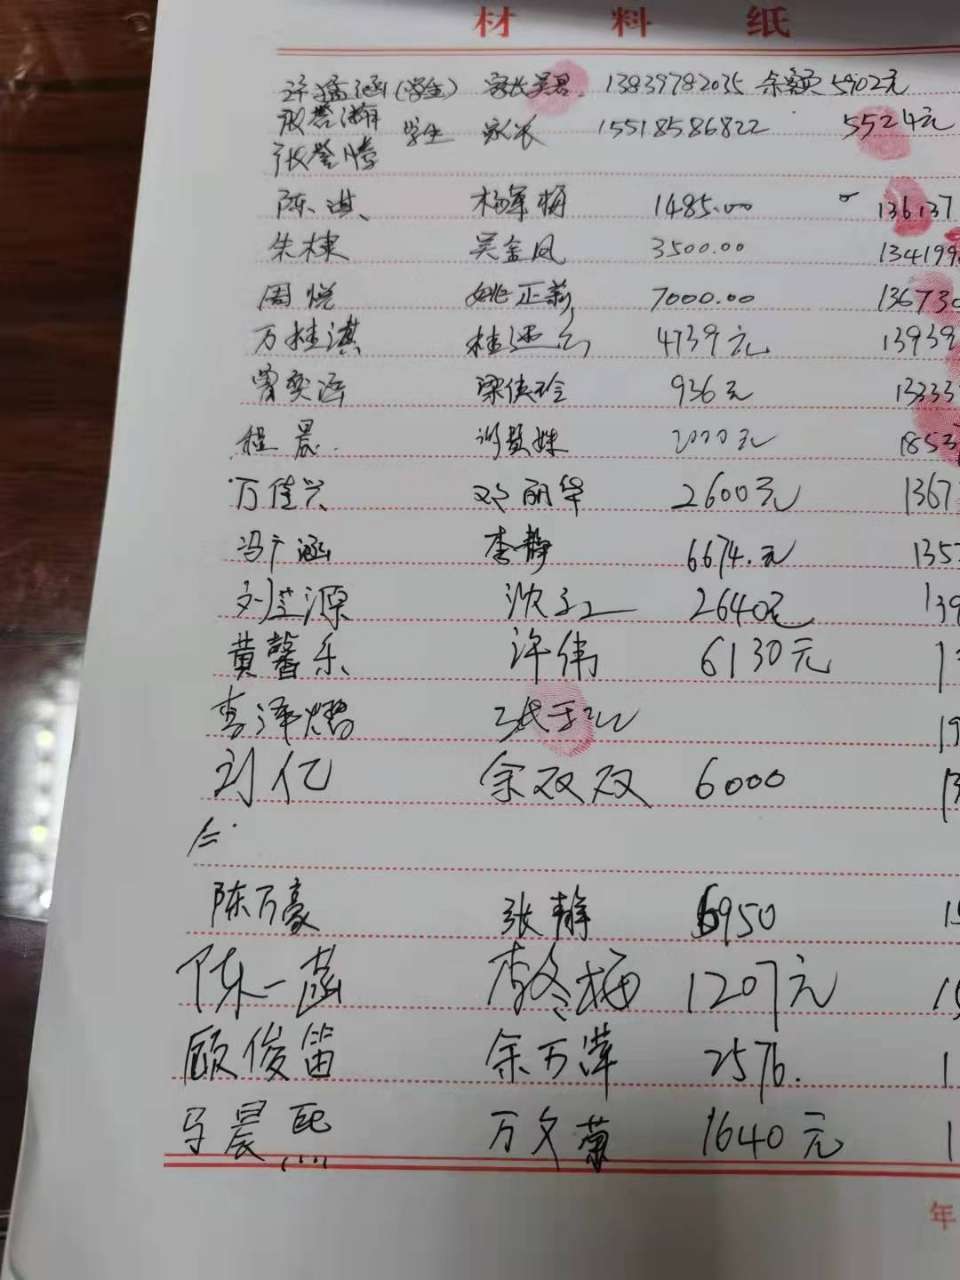 材料纸
涵(学生) 家长吴君 13839782035 余额 5902元
学生 家长 15518586822 5524元
张誉腾
陈淇 杨军梅 1485.00 136137
朱棣 吴金凤 3500.00 134199
周悦 姚正莉 7000.00 13673
万桂淇 桂 4739元 13939
曾奕 梁侠玲 936元 13333
程晨 姝 2000元 1853
万佳兴 邓丽华 2600元 1367
冯广涵 李静 6674.元 135
刘芸源 沈红 2640元 139
黄馨乐 许伟 6130元 1
李泽熠 19
刘亿 余双双 6000 13
陈万豪 张静 6950 15
陈一菡 李冬梅 1207元 15
顾俊笛 余万萍 2576. 1
马晨熙 万文菊 1640元 1
年